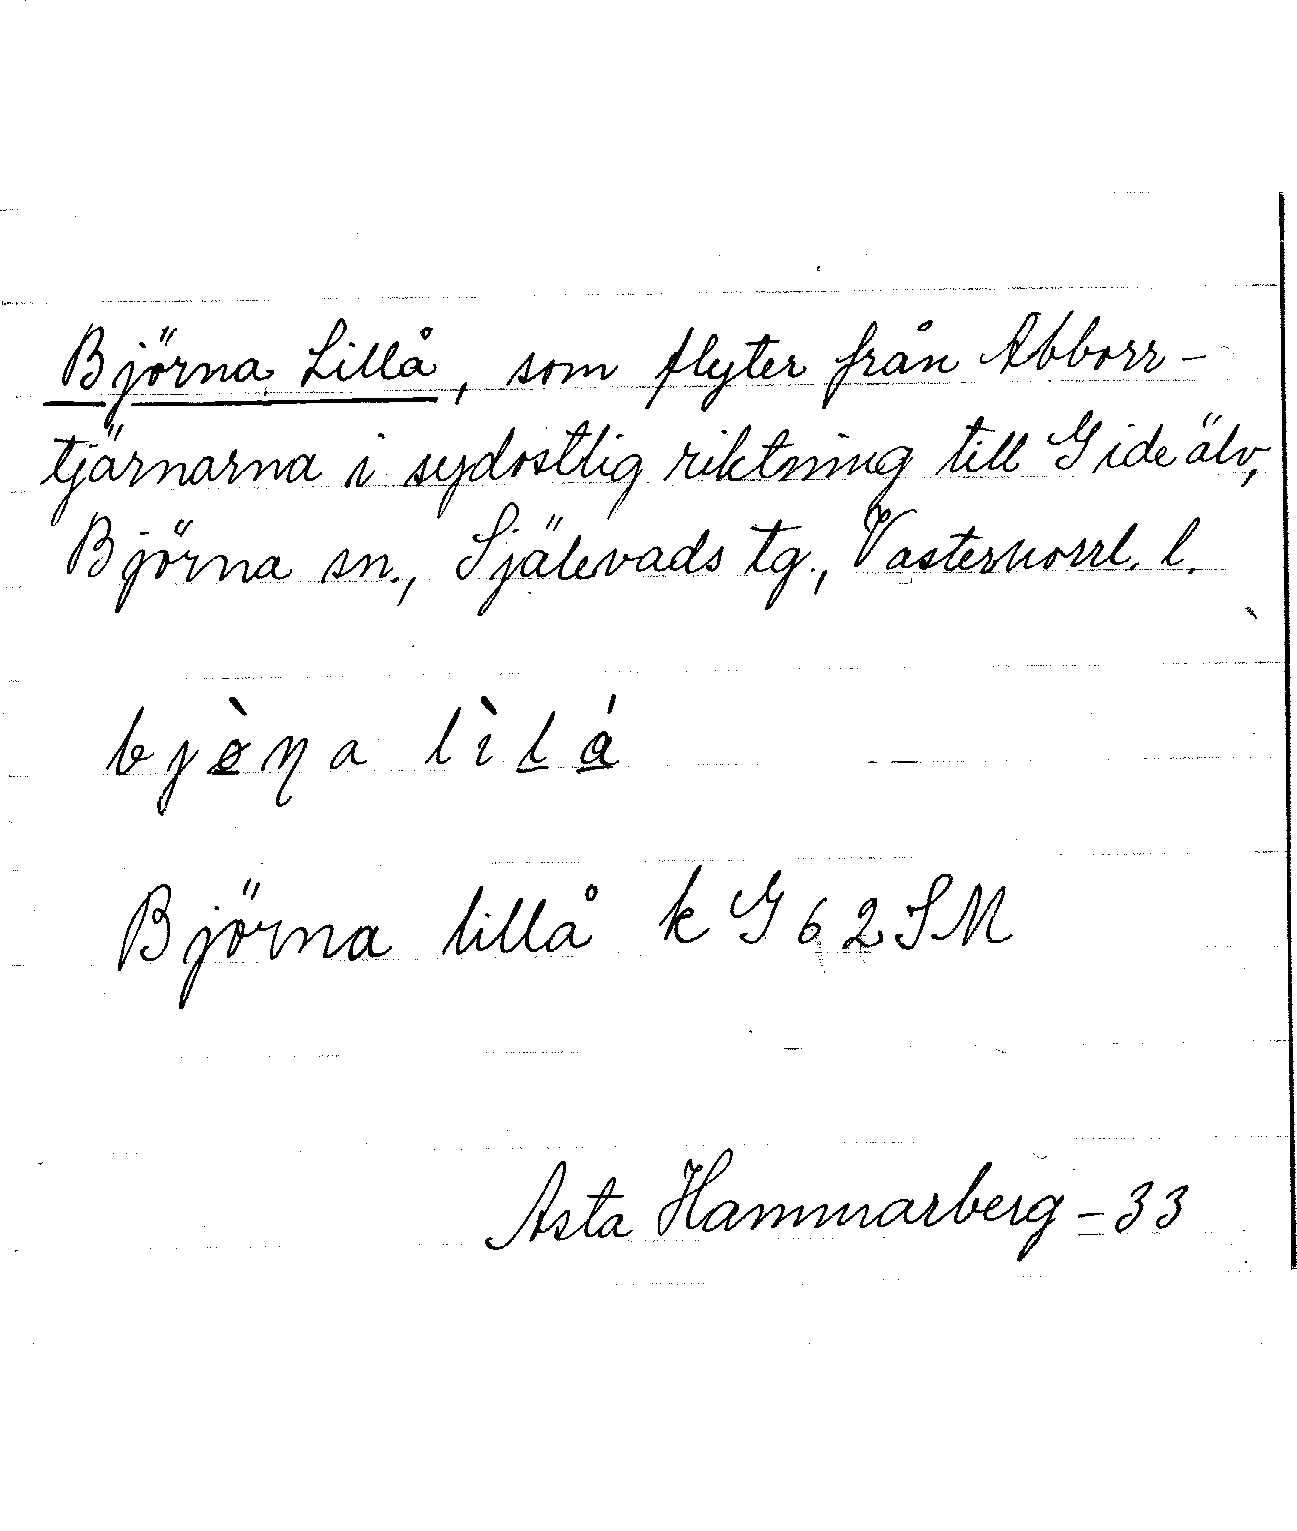 Björna Lillå, som flyter från Abborr-
tjärnarna i sydostlig riktning till Gideälv,
Björna sn., Själevads tg., Vasternorrl. l.
bjø̀ŋa lìlá
Björna lillå k G 62 SM
Asta Hammarberg -33